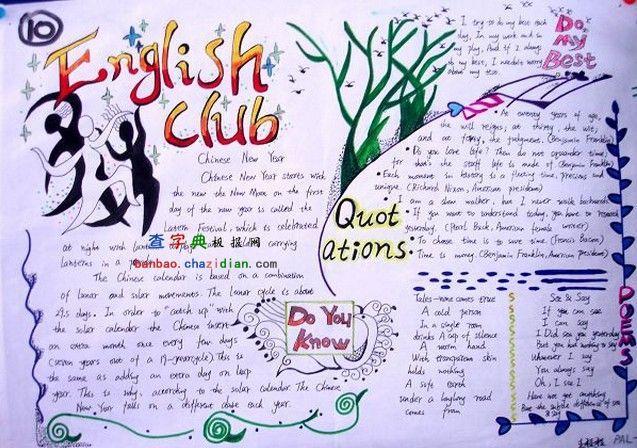 10
English
Club
Chinese New Year
Chinese New Year starts with
the new the New Moon on the first
day of the new year is called the
Lantern Festival, which is celebrated
at night with lantern carrying
lanterns in a
查字典板报网
banbao.chazidian.com
The Chinese calendar is based on a combination
of lunar and solar movements. The lunar cycle is about
29.5 days. In order to "catch up" with
the solar calendar the Chinese insert
an extra month once every few days
(seven years out of a 19-yearcycle). This is
the same as adding an extra day on leap
year. This is why, according to the solar calendar. The Chinese
New Year falls on a different date each year.
Do You
Know
I try to do my best each
day, In my work and in
my play, And if I always
do my best, I needn't worry
about my test.
Do
my
Best
Quot
ations:
At twenty years of age,
the will reigns, at thirty, the wit,
and at forty, the judgment. (Benjamin Franklin)
Do you love life? Then do not squander time,
for that's the stuff life is made of. (Benjamin Franklin)
Each moment in history is a fleeting time, precious and
unique. (Richard Nixon, American president)
I am a slow walker, but I never walk backwards.
If you want to understand today, you have to research
yesterday. (Pearl Buck, American female writer)
To choose time is to save time. (Francis Bacon)
Time is money. (Benjamin Franklin, American president)
POEMS
Tales-none comes true
A cold person
In a single room
drinks A cup of silence
A warm hand
With transparent skin
holds nothing
A safe earth
under a laughing road
comes from
See & Say
If you can see
I can say
I Did see you yesterday
But you had nothing to say
Whenever I say
You always say
Oh, I see I
Have not got anything
But the subtle difference of see
& say